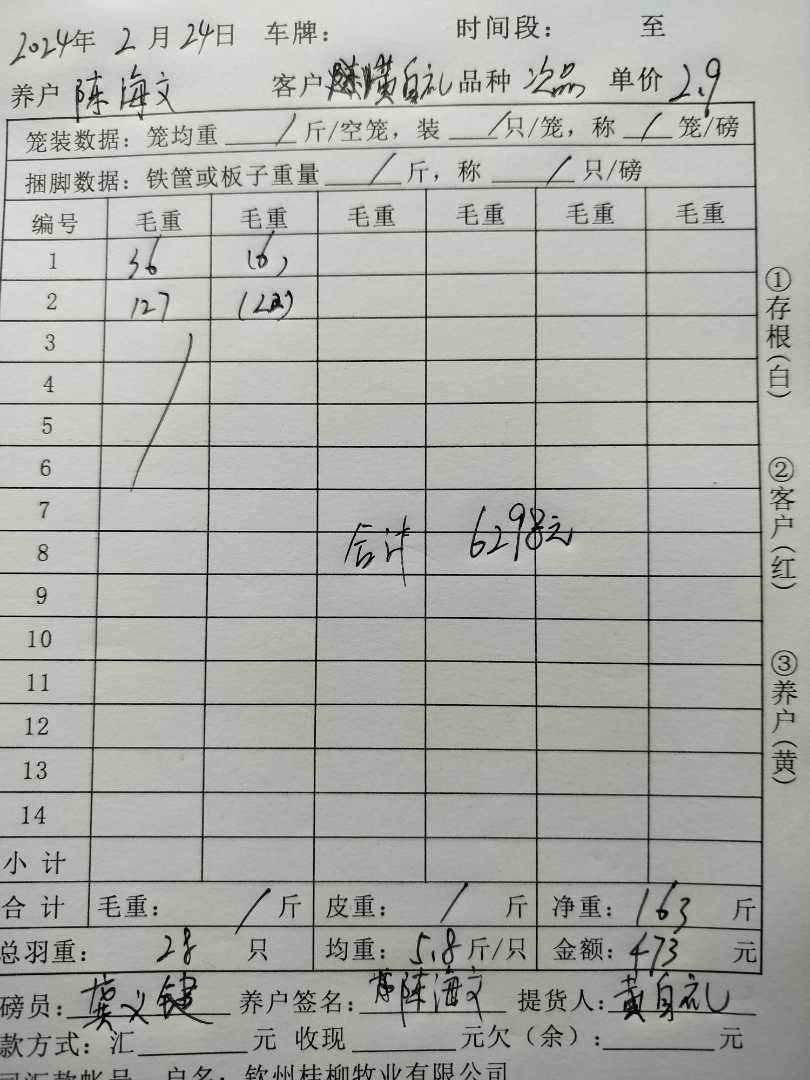 2024年 2 月 24日 车牌： 时间段： 至
养户 陈海文 客户 黄自礼 品种 次品 单价 2.9
笼装数据：笼均重 / 斤/空笼，装 / 只/笼，称 / 笼/磅
捆脚数据：铁筐或板子重量 / 斤，称 / 只/磅
编号 毛重 毛重 毛重 毛重 毛重 毛重
1 36 (6)
2 127 (22)
3
4
5
6
7
8 合计 6298元
9
10
11
12
13
14
小 计
合 计 毛重： / 斤 皮重： / 斤 净重：163 斤
总羽重： 28 只 均重：5.8斤/只 金额：473 元
磅员： 龚义键 养户签名： 陈海文 提货人：黄自礼
款方式：汇 元 收现 元欠（余）： 元
司汇款帐号 户名：钦州桂柳牧业有限公司
①存根(白) ②客户(红) ③养户(黄)